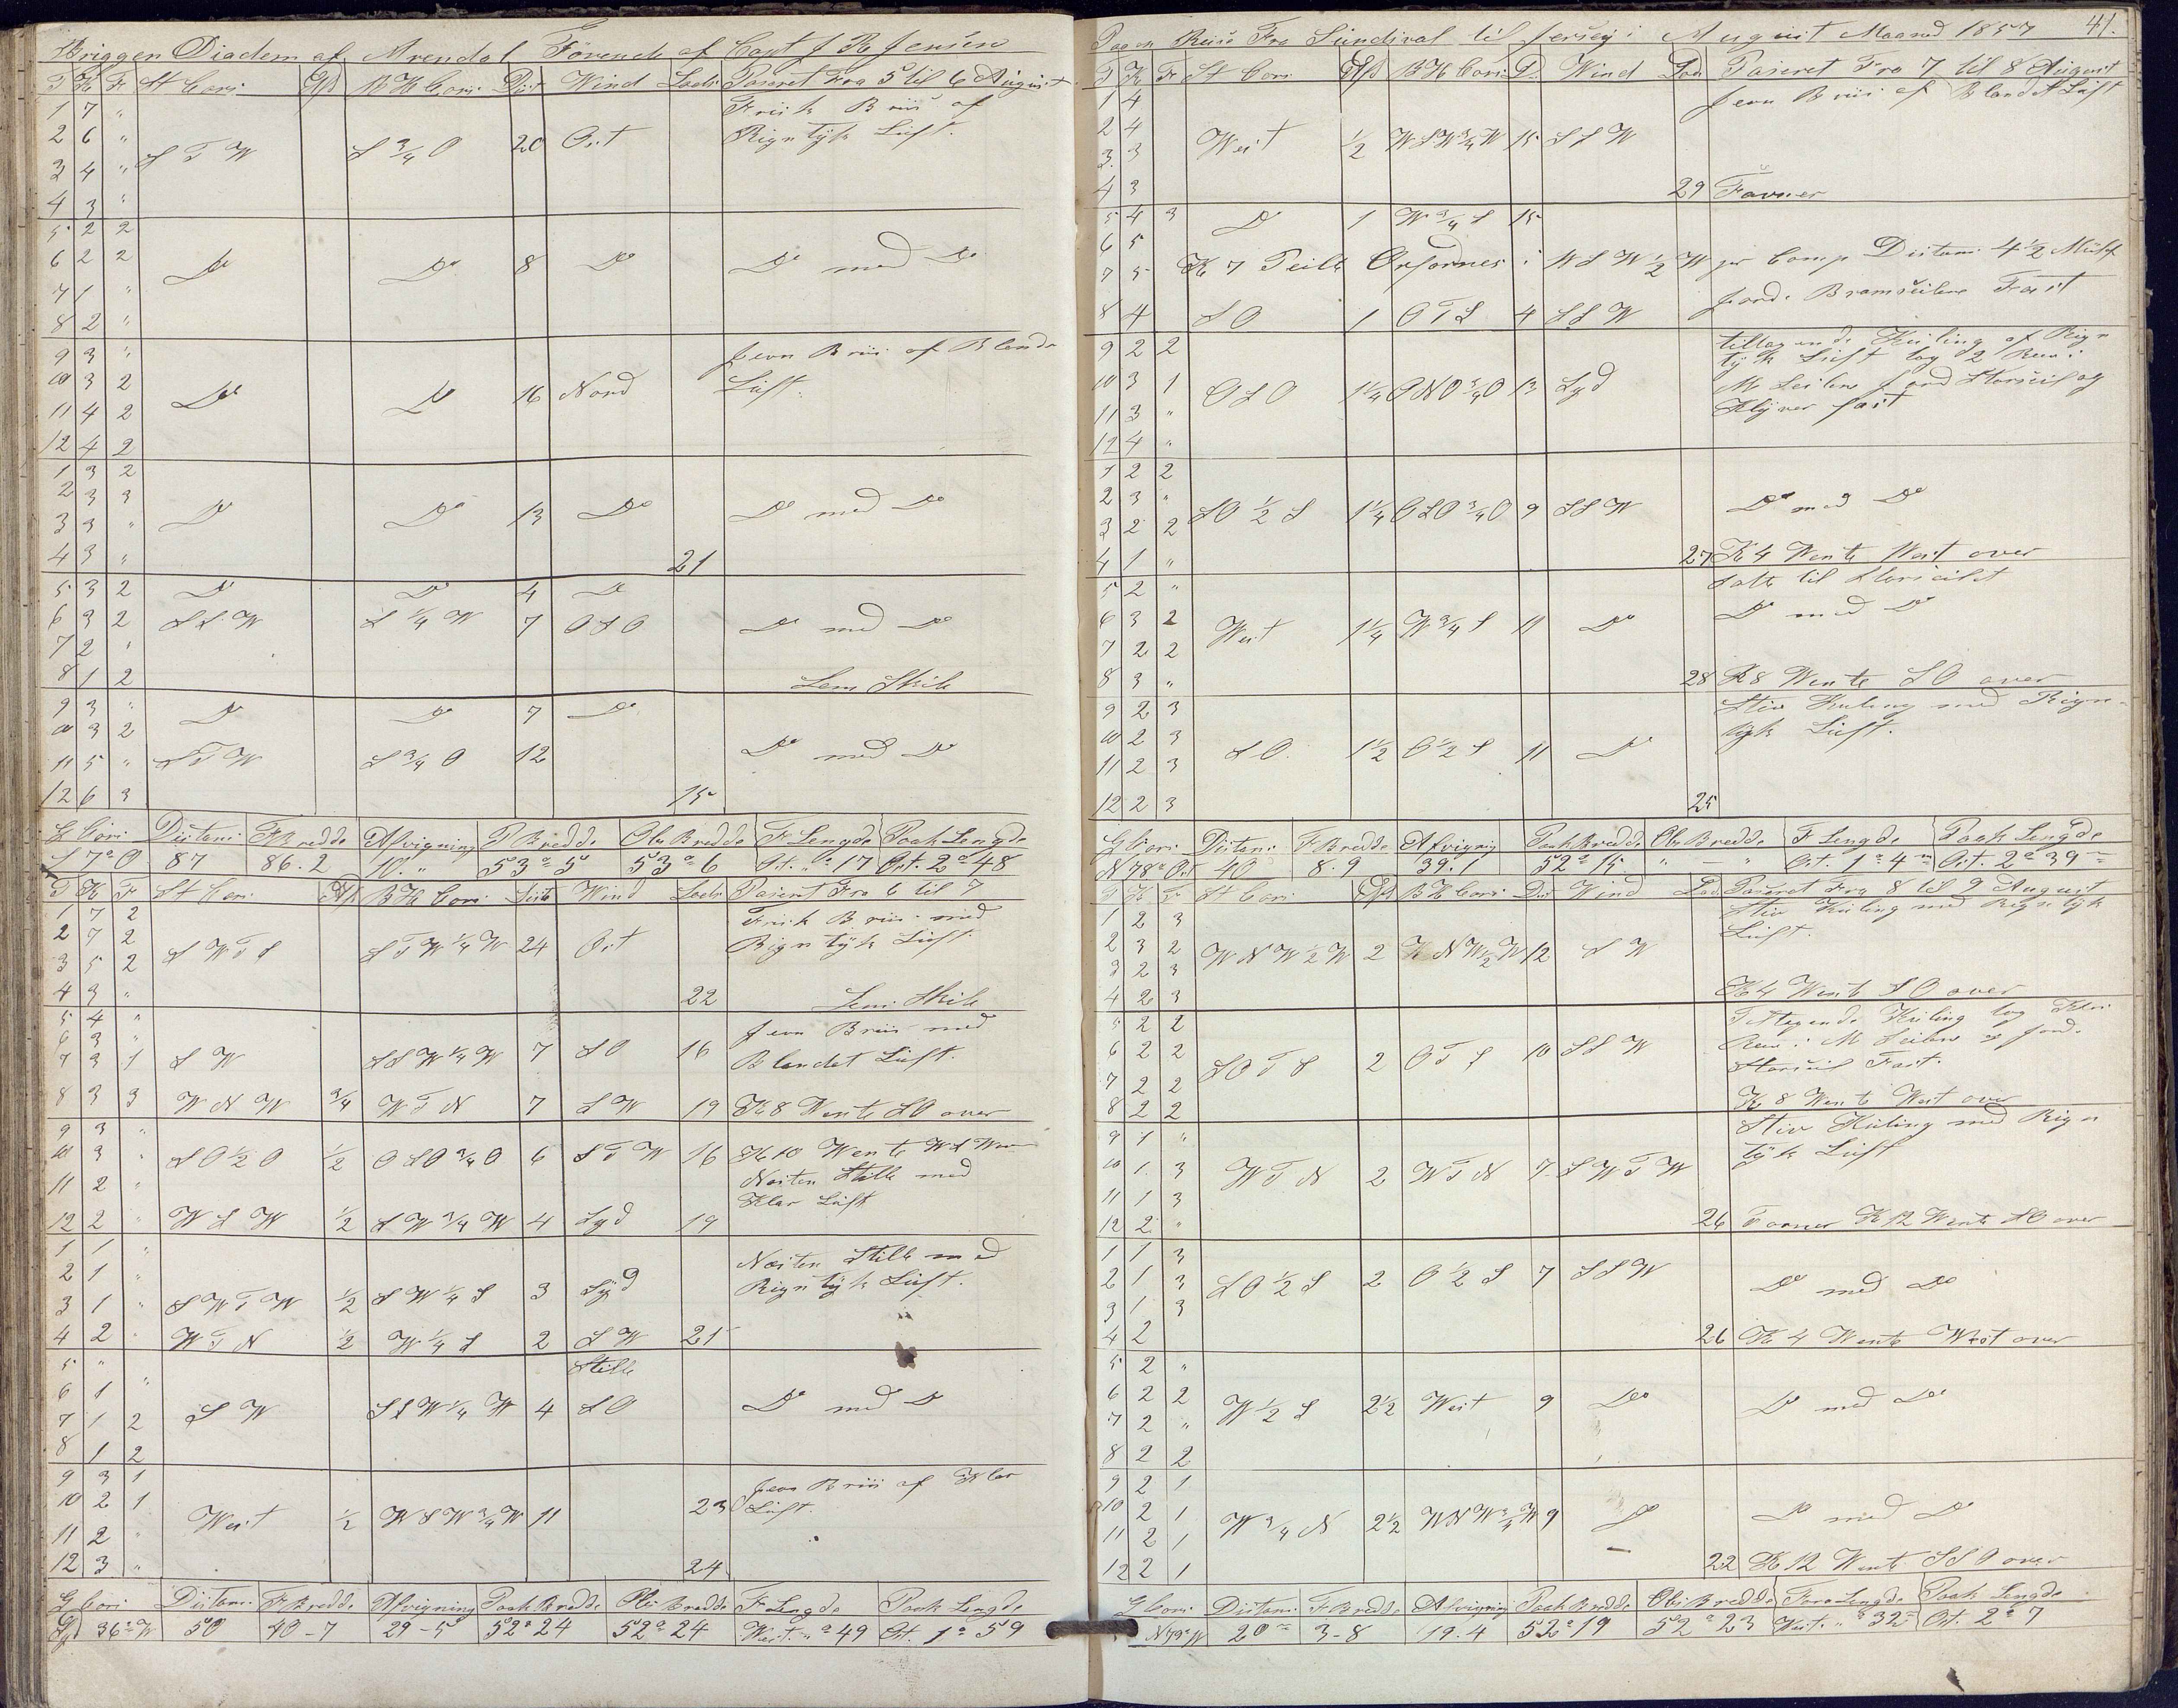 Briggen Diadem af Arendal Förende af Capt J R Jensen
T K F St Cors Afd B H Cors Dist Wind Lods Paseret Fra 5 til 6 August
1 7 " Frisk Briis af
2 6 " S T W S 3/4 O 20 Ost Rigntÿk Luft.
3 4 "
4 3 "
5 2 2
6 2 2 Do Do 8 Do Do med Do
7 1 "
8 2 "
9 3 " Jevn Briis af Blande
10 3 2 Do Do 16 Nord Luft.
11 4 2
12 4 2
1 3 2
2 3 3
3 3 " Do Do 13 Do Do med Do
4 3 " 21
5 3 2 Do Do 4 Do
6 3 2 S S W S 1/4 W 7 O S O Do med Do
7 2 "
8 1 2 Lens Skib
9 3 " Do Do 7 Do
10 3 2
11 5 " S T W S 3/4 O 12 Do med Do
12 6 3 15
G Cors Distans F Bredde Afvigning P Bredde Obs Bredde F Lengde Paak Lengde
S 7° O 87 86.2 10. " 53° 5 53° 6 Ost. "° 17 Ost. 2° 48
T K F St Cors Afd B H Cors Dist Wind Lods Paseret Fra 6 til 7
1 7 2 Frisk Briis med
2 7 2 S W T S S T W 1/4 W 24 Ost Rigntÿk Luft
3 5 2
4 3 " 22 Lens Skib
5 4 " Jevn Briis med
6 3 "
7 3 1 S W S S W 1/4 W 7 S O 16 Blandet Luft.
8 3 3 W N W 3/4 W T N 7 S W 19 K 8 Wente S O over
9 3 "
10 3 " S O 1/2 O 1/2 O S O 3/4 O 6 S T W 16 K 10 Wente W S W
11 2 " Næsten Stille med
Klar Luft
12 2 " W S W 1/2 S W 3/4 W 4 Syd 19
1 1 " Næsten Stille med
2 1 " Rigntÿk Luft.
3 1 " S W T W 1/2 S W 1/4 S 3 Sÿd
4 2 " W T N 1/2 W 1/4 S 2 S W 21
5 " Stille
6 1 "
7 1 2 S W S S W 1/4 W 4 S O Do med Do
8 1 2
9 3 1 Jevn Briis af Klar
10 2 1 23 Luft.
11 2 " West 1/2 W S W 3/4 W 11
12 3 " 24
G Cors Distans F Bredde Afvigning Paak Bredde Obs Bredde F Lengde Paak Lengde
Syd 36° W 50 40-7 29-5 52° 24 52° 24 West. "° 49 Ost. 1° 59
Paa en Reise Fra Sundsval til Jersey i August Maaned 1857 41.
T K F St Cors Afd B H Cors D. Wind Lod Paseret Fra 7 til 8 August
1 4 Jevn Briis af Blandet Luft
2 4 West 1/2 W S W 3/4 W 15 S S W
3 3
4 3 29 Favner
5 4 3 Do 1 W 3/4 S 15
6 5
7 5 K 7 Peilt Orfornes i W S W 1/2 W pr Comp Distans 4 1/2 Miil
8 4 S O 1 O T S 4 S S W fordi Bramseilene Fast
9 2 2 tiltagende Kuling af Rign
tÿk Luft tog 2 Rev i
10 3 1 O S O 1 1/4 O N O 3/4 O 13 Syd M Seilene fandt Storseil og
11 3 " Klÿver fast
12 4 "
1 2 2
2 3 " S O 1/2 S 1 1/4 O S O 3/4 O 9 S S W Do med Do
3 2 2
4 1 " 27 K 4 Wente West over
5 2 " Satte til Storseilet
6 3 2 West 1 1/4 W 3/4 S 11 Do Do med Do
7 2 2
8 3 " 28 K 8 Wente S O over
9 2 3 Stiv Kuling med Rign
10 2 3 S O 1 1/2 O 1/2 S 11 Do tÿk Luft.
11 2 3
12 2 3 25
G Cors Distans F Bredde Afvigning Paak Bredde Obs Bredde F Lengde Paak Lengde
N 78° Ost 40 8.9 39.1 52° 15 " — " Ost. 1° 4 Ost. 2° 39
T K F St Cors Afd B H Cors Dist Wind Lod Paseret Fra 8 til 9 August
1 2 3 Stiv Kuling med Rigntÿk
2 3 2 W N W 1/2 W 2 W N W 1/2 W 12 S W Luft.
3 2 3
4 2 3 K 4 Went S O over
5 2 2 Tiltagende Kuling tog
6 2 2 S O T S 2 O T S 10 S S W Rev i M Seilene
7 2 2 Storseil Fast.
8 2 2 K 8 Wente West over
9 1 " Stiv Kuling med Rign
10 1 3 W T N 2 W T N 7 S W T W tÿk Luft
11 1 3
12 2 " 26 Favner K 12 Wente S O over
1 1 3
2 1 3 S O 1/2 S 2 O 1/2 S 7 S S W Do med Do
3 1 3
4 2 26 K 4 Wente West over
5 2 "
6 2 2 W 1/2 S 2 1/2 West 9 Do Do med Do
7 2 "
8 2 2
9 2 1
10 2 1 W 3/4 N 2 1/2 W N W 3/4 W 9 Do Do med Do
11 2 1
12 2 1 22 K 12 Wente S S O over
G Cors Distans F Bredde Afvigning Paak Bredde Obs Bredde Fora Lengde Paak Lengde
N 79° W 20 3-8 19.4 52° 19 52° 23 West. "° 32 Ost. 2° 7